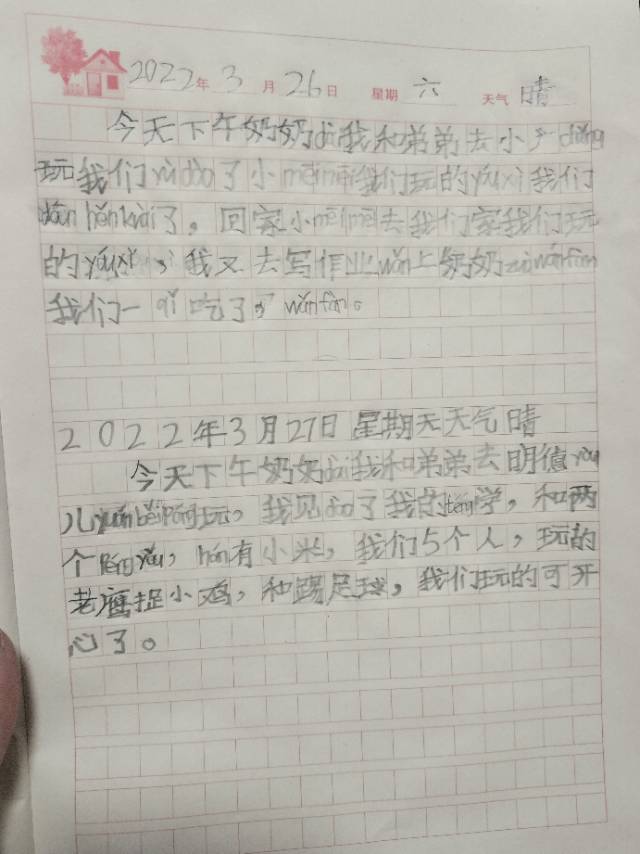 2022年 3月 26日 星期 六 天气 晴
今天下午奶奶dài我和弟弟去小广chǎng
玩我们yù dào了小mèimei我们玩的yóuxì我们
wán hěn kuài了，回家小mèimei去我们家我们玩
的yóuxì，我又去写作业wǎn上奶奶zuò wǎnfàn
我们一qǐ吃了wǎnfàn。
2022年3月27日星期天天气晴
今天下午奶奶dài我和弟弟去明德yòu
儿yuán玩，我见dào了我的tóng学，和两
个péngyǒu，hán有小米，我们5个人，玩的
老鹰捉小鸡，和踢足球，我们玩的可开
心了。